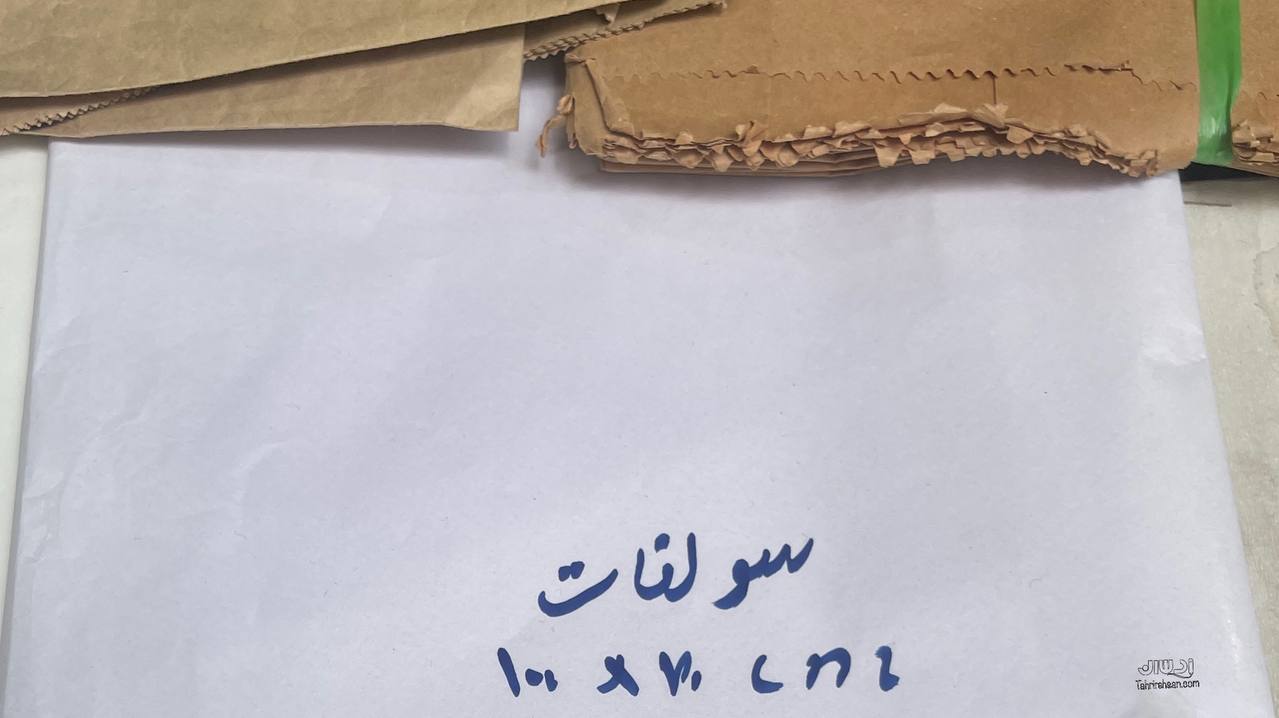 سولفات
۱۰۰ × ۷۰ cm
Tahrirehsan.com